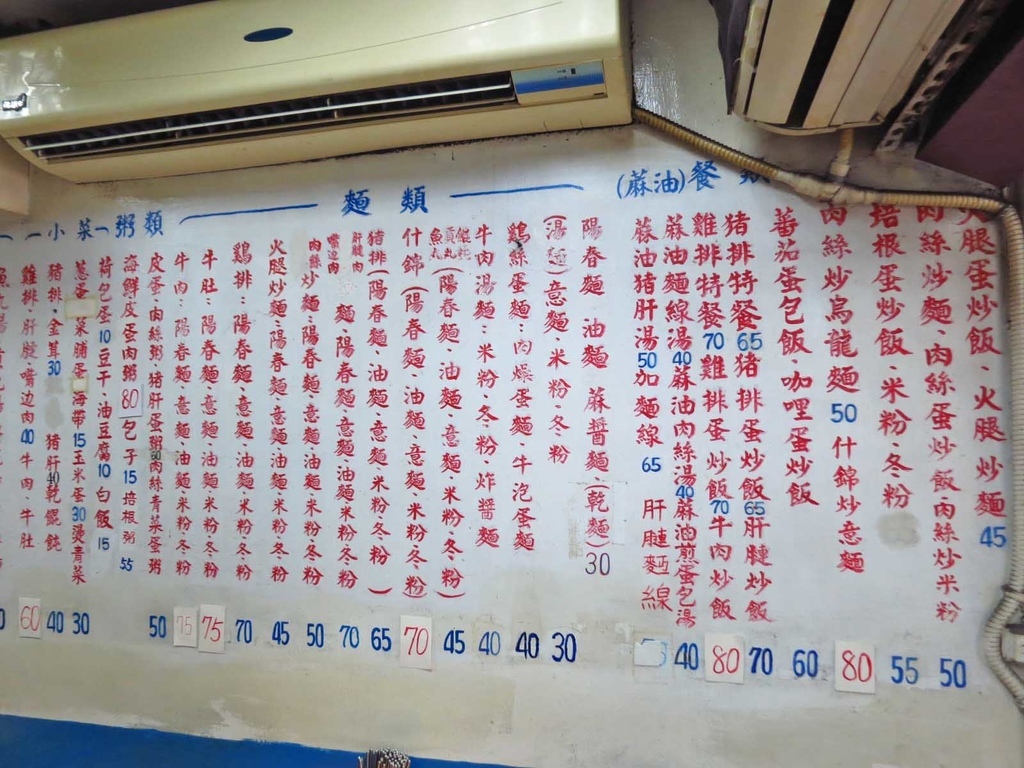 火腿蛋炒飯、火腿炒麵 45
肉絲炒麵、肉絲蛋炒飯、肉絲炒米粉 50
培根蛋炒飯、米粉、冬粉 55
肉絲炒烏龍麵 50 什錦炒意麵 80
蕃茄蛋包飯、咖哩蛋炒飯 60
(蔴油)餐類
猪排特餐 65 猪排蛋炒飯 65 肝腱炒飯 70
雞排特餐 70 雞排蛋炒飯 70 牛肉炒飯 80
蔴油麵線湯 40 蔴油肉絲湯 40 麻油煎蛋包湯 40
蔴油猪肝湯 50 加麵線 65 肝腱麵線
麵類
陽春麵 油麵 蔴醬麵、(乾麵) 30
(湯麵)意麵、米粉、冬粉 30
雞絲蛋麵、肉燥蛋麵、牛泡蛋麵 40
牛肉湯麵:米粉、冬粉、炸醬麵 40
餛飩 貢丸 魚丸 (陽春麵、油麵、意麵、米粉、冬粉) 45
什錦(陽春麵、油麵、意麵、米粉冬粉) 70
猪排(陽春麵、油麵、意麵米粉冬粉) 65
嘴边肉 肝腱肉 麵、陽春麵意麵油麵米粉冬粉 70
肉絲炒麵、陽春麵、意麵、油麵米粉冬粉 50
火腿炒麵:陽春麵、意麵、油麵、米粉冬粉 45
雞排:陽春麵、意麵、油麵、米粉冬粉 70
牛肚:陽春麵、意麵、油麵、米粉冬粉 75
牛肉:陽春麵、意麵、油麵、米粉冬粉 75
粥類
皮蛋、肉絲粥、猪肝蛋粥 60 肉絲青菜蛋粥 50
海鮮皮蛋肉粥 80 包子 15 培根粥 55
小菜
荷包蛋 10 豆干、油豆腐 10 白飯 15
蔥蛋 菜脯蛋 海帶 15 玉米蛋 30 燙青菜 30
猪排、金茸 30 猪肝 40 乾餛飩 40
雞排、肝腱嘴边肉 40 牛肉、牛肚 60